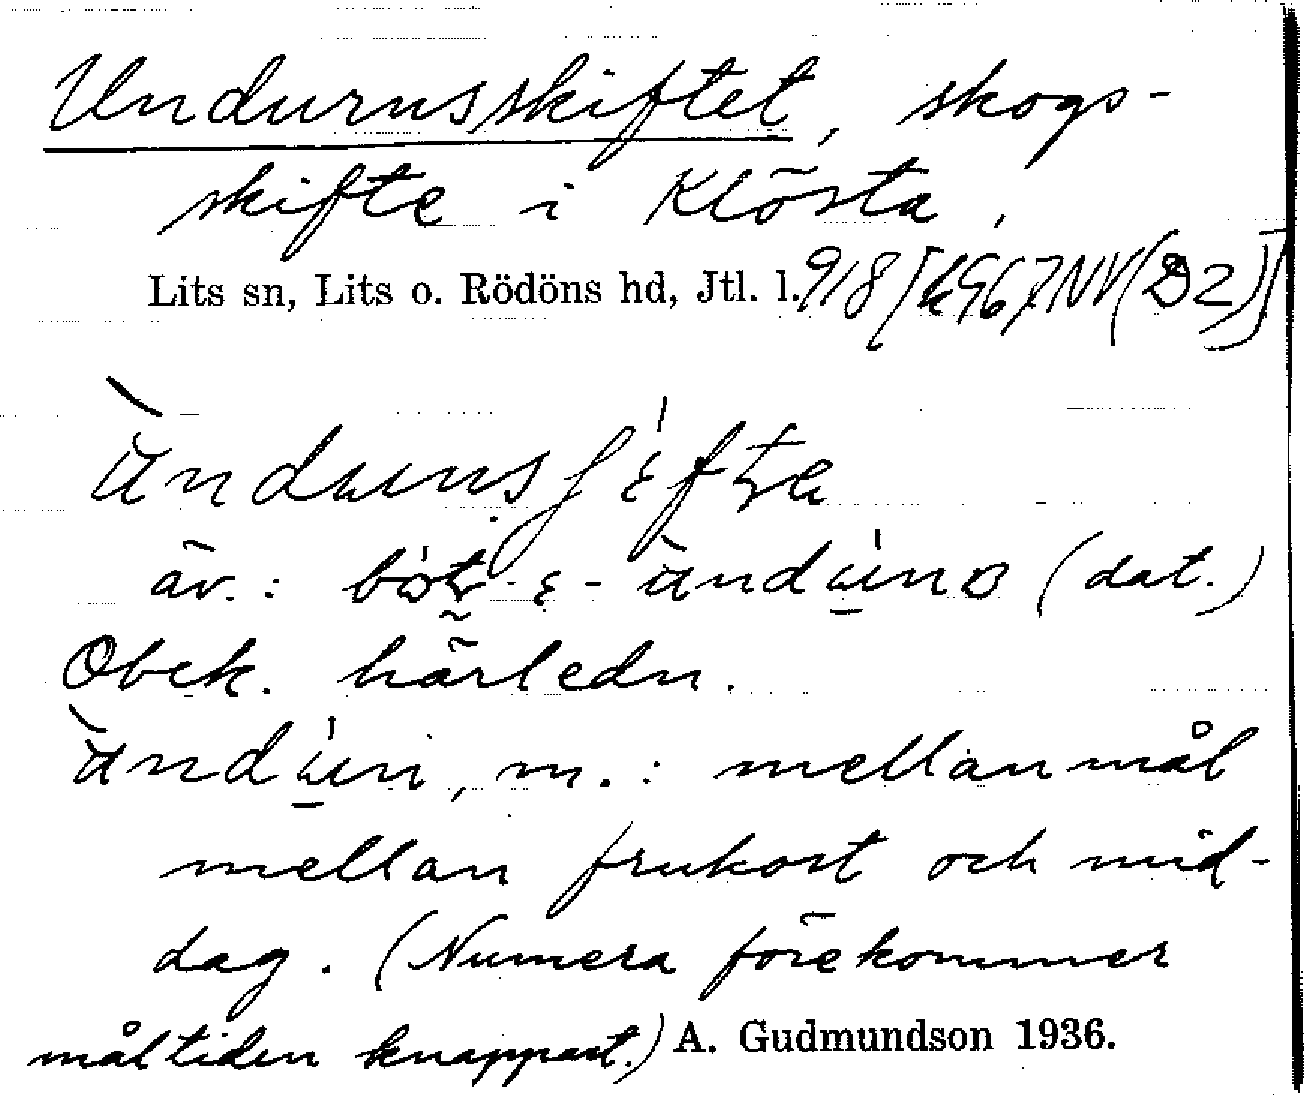 Undurnsskiftet, skogs-
skifte i Klösta,
Lits sn, Lits o. Rödöns hd, Jtl. l. 918 [k967NV(D2)]
ändunsʃɛftɐ
äv.: ändunɷ (dat.)
Obek. härledn.
ändun, m.: mellanmål
mellan frukost och mid-
dag. (Numera förekommer
måltiden knappast.) A. Gudmundson 1936.